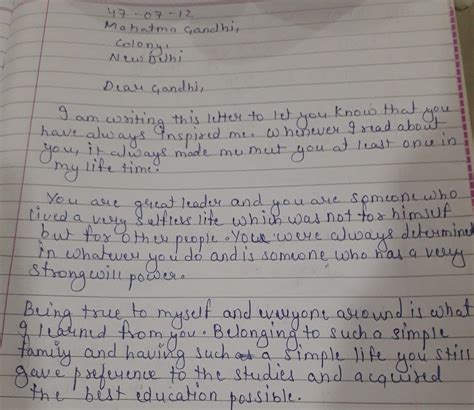 47-07-12
Mahatma Gandhi,
Colony,
New Delhi
Dear Gandhi,
I am writing this letter to let you know that you
have always inspired me. Whenever I read about
you, it always made me meet you at least once in
my life time.
You are great leader and you are someone who
lived a very selfless life which was not for himself
but for other people. You were always determined
in whatever you do and is someone who has a very
strong will power.
Being true to myself and everyone around is what
I learned from you. Belonging to such a simple
family and having such a simple life you still
gave preference to the studies and acquired
the best education possible.